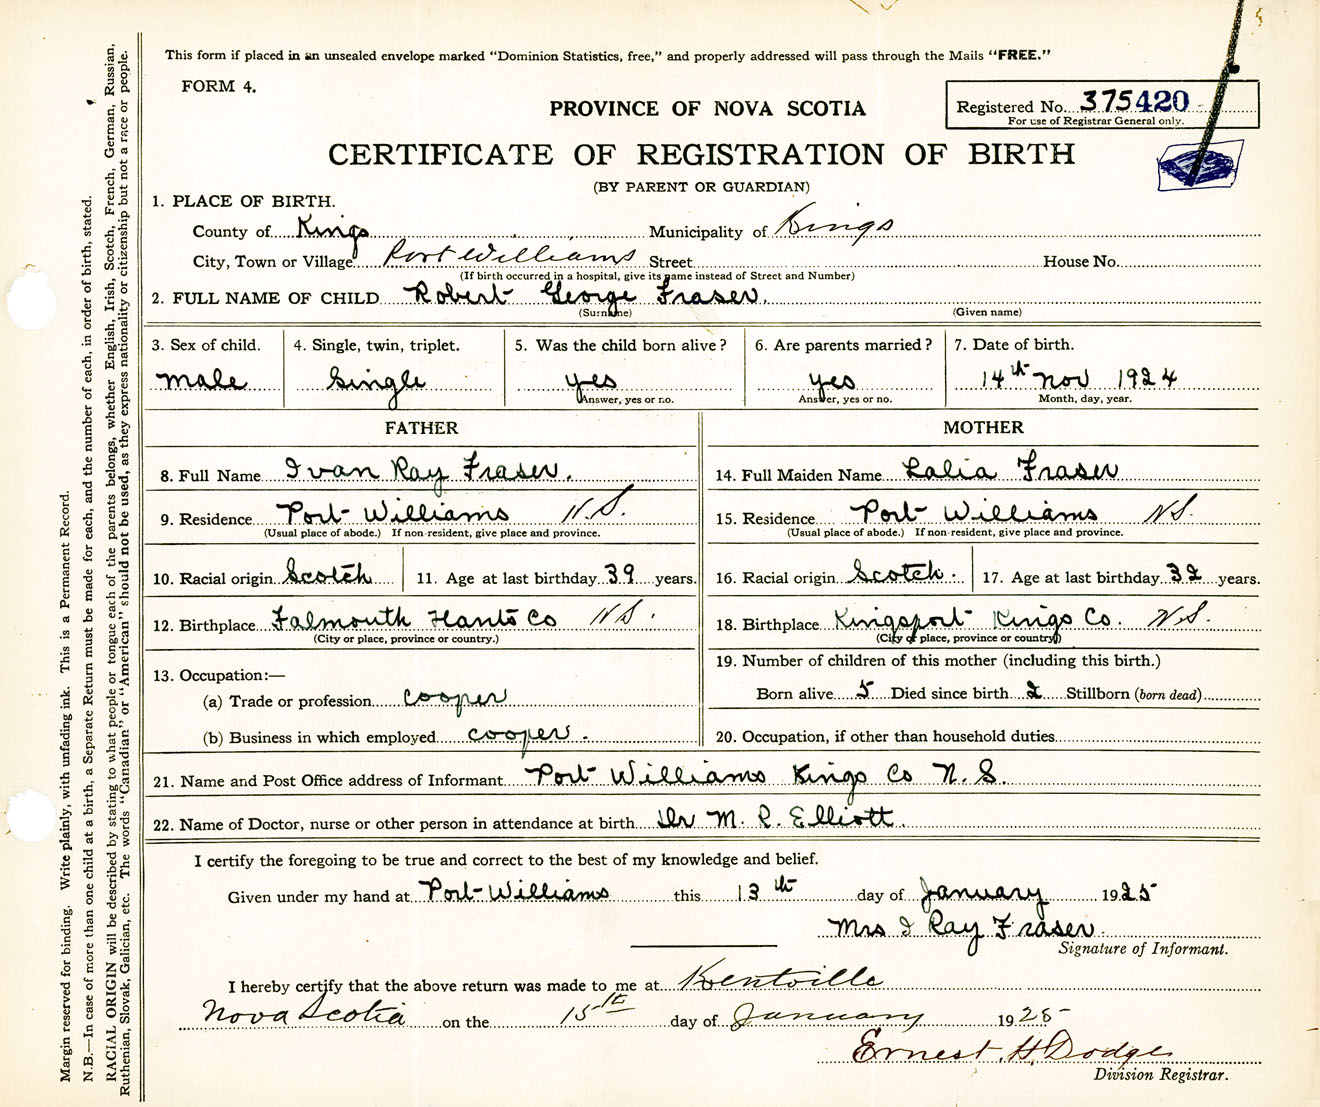 This form if placed in an unsealed envelope marked "Dominion Statistics, free," and properly addressed will pass through the Mails "FREE."
FORM 4.
PROVINCE OF NOVA SCOTIA
Registered No. 375420
For use of Registrar General only.
CERTIFICATE OF REGISTRATION OF BIRTH
(BY PARENT OR GUARDIAN)
1. PLACE OF BIRTH.
County of Kings Municipality of Kings
City, Town or Village Port Williams Street House No.
(If birth occurred in a hospital, give its name instead of Street and Number)
2. FULL NAME OF CHILD Robert George Fraser.
(Surname) (Given name)
3. Sex of child. 4. Single, twin, triplet. 5. Was the child born alive? 6. Are parents married? 7. Date of birth.
male Single yes yes 14th Nov 1924
Answer, yes or no. Answer, yes or no. Month, day, year.
FATHER MOTHER
8. Full Name Ivan Ray Fraser. 14. Full Maiden Name Lalia Fraser
9. Residence Port Williams N.S. 15. Residence Port Williams N.S.
(Usual place of abode.) If non-resident, give place and province. (Usual place of abode.) If non-resident, give place and province.
10. Racial origin Scotch 11. Age at last birthday 39 years. 16. Racial origin Scotch. 17. Age at last birthday 32 years.
12. Birthplace Falmouth Hants Co N.S. 18. Birthplace Kingsport Kings Co. N.S.
(City or place, province or country.) (City or place, province or country)
13. Occupation:— 19. Number of children of this mother (including this birth.)
(a) Trade or profession cooper Born alive 5 Died since birth 2 Stillborn (born dead)
(b) Business in which employed cooper. 20. Occupation, if other than household duties
21. Name and Post Office address of Informant Port Williams Kings Co N.S.
22. Name of Doctor, nurse or other person in attendance at birth Dr M. R. Elliott.
I certify the foregoing to be true and correct to the best of my knowledge and belief.
Given under my hand at Port Williams this 13th day of January 1925
Mrs I Ray Fraser
Signature of Informant.
I hereby certify that the above return was made to me at Kentville
Nova Scotia on the 15th day of January 1925
Ernest H. Dodge
Division Registrar.
Margin reserved for binding. Write plainly, with unfading ink. This is a Permanent Record.
N.B.—In case of more than one child at a birth, a Separate Return must be made for each, and the number of each, in order of birth, stated.
RACIAL ORIGIN will be described by stating to what people or tongue each of the parents belongs, whether English, Irish, Scotch, French, German, Russian,
Ruthenian, Slovak, Galician, etc. The words "Canadian" or "American" should not be used, as they express nationality or citizenship but not a race or people.